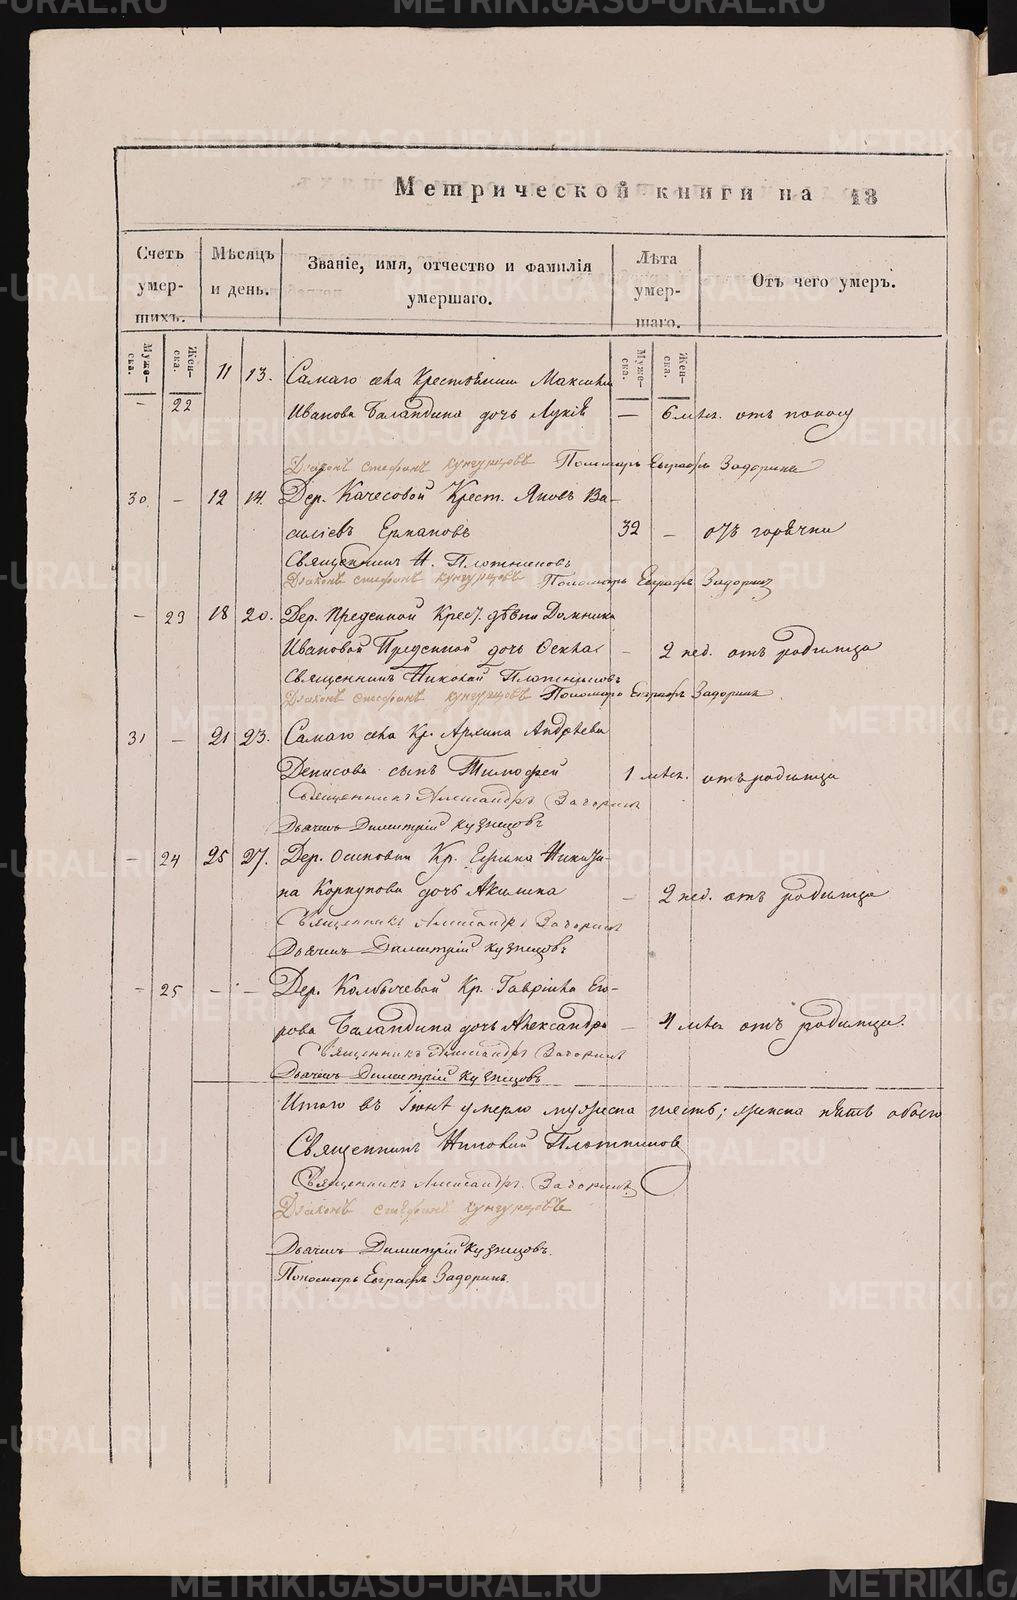 Метрической книги на 18
Счетъ умер-шихъ.
Мѣсяцъ и день.
Званіе, имя, отчество и фамилія умершаго.
Лѣта умер-шаго.
Отъ чего умеръ.
Муже-ска.
Жен-ска.
Муже-ска.
Жен-ска.
11 13. Самаго села Крестьянина Максима
– 22 Иванова Баландина дочь Лукія – 6 мѣс. отъ поносу
Діаконъ Стефанъ Кунгурцовъ Пономарь Евграфъ Задоринъ
30 – 12 14. Дер. Качесовой Крест. Яковъ Ва-
силіевъ Ермаковъ 32 – отъ горячки
Священникъ Н. Плотниковъ
Діаконъ Стефанъ Кунгурцовъ Пономарь Евграфъ Задоринъ
– 23 18 20. Дер. Крест. дѣвки Домники
Ивановой дочь – 2 нед. отъ родимца
Священникъ Николай Плотниковъ
Діаконъ Стефанъ Кунгурцовъ Пономарь Евграфъ Задоринъ
31 – 21 23. Самаго села Кр. Архипа Андреева
Денисова сынъ Тимофей 1 мѣс. отъ родимца
Священникъ Александръ Задоринъ
Дьячекъ Димитрій Кузнецовъ
– 24 25 27. Дер. Осиповки Кр.
дочь Акилина – 2 нед. отъ родимца
Священникъ Александръ Задоринъ
Дьячекъ Димитрій Кузнецовъ
– 25 – – Дер. Колбычевой Кр. Гавріила Его-
рова Баландина дочь Александра – 4 мѣс. отъ родимца.
Священникъ Александръ Задоринъ
Дьячекъ Димитрій Кузнецовъ
Итого въ Іюнѣ умерло мужеска шесть; женска пять обоего
Священникъ Николай Плотниковъ
Священникъ Александръ Задоринъ
Діаконъ Стефанъ Кунгурцовъ
Дьячекъ Димитрій Кузнецовъ.
Пономарь Евграфъ Задоринъ.
METRIKI.GASO-URAL.RU